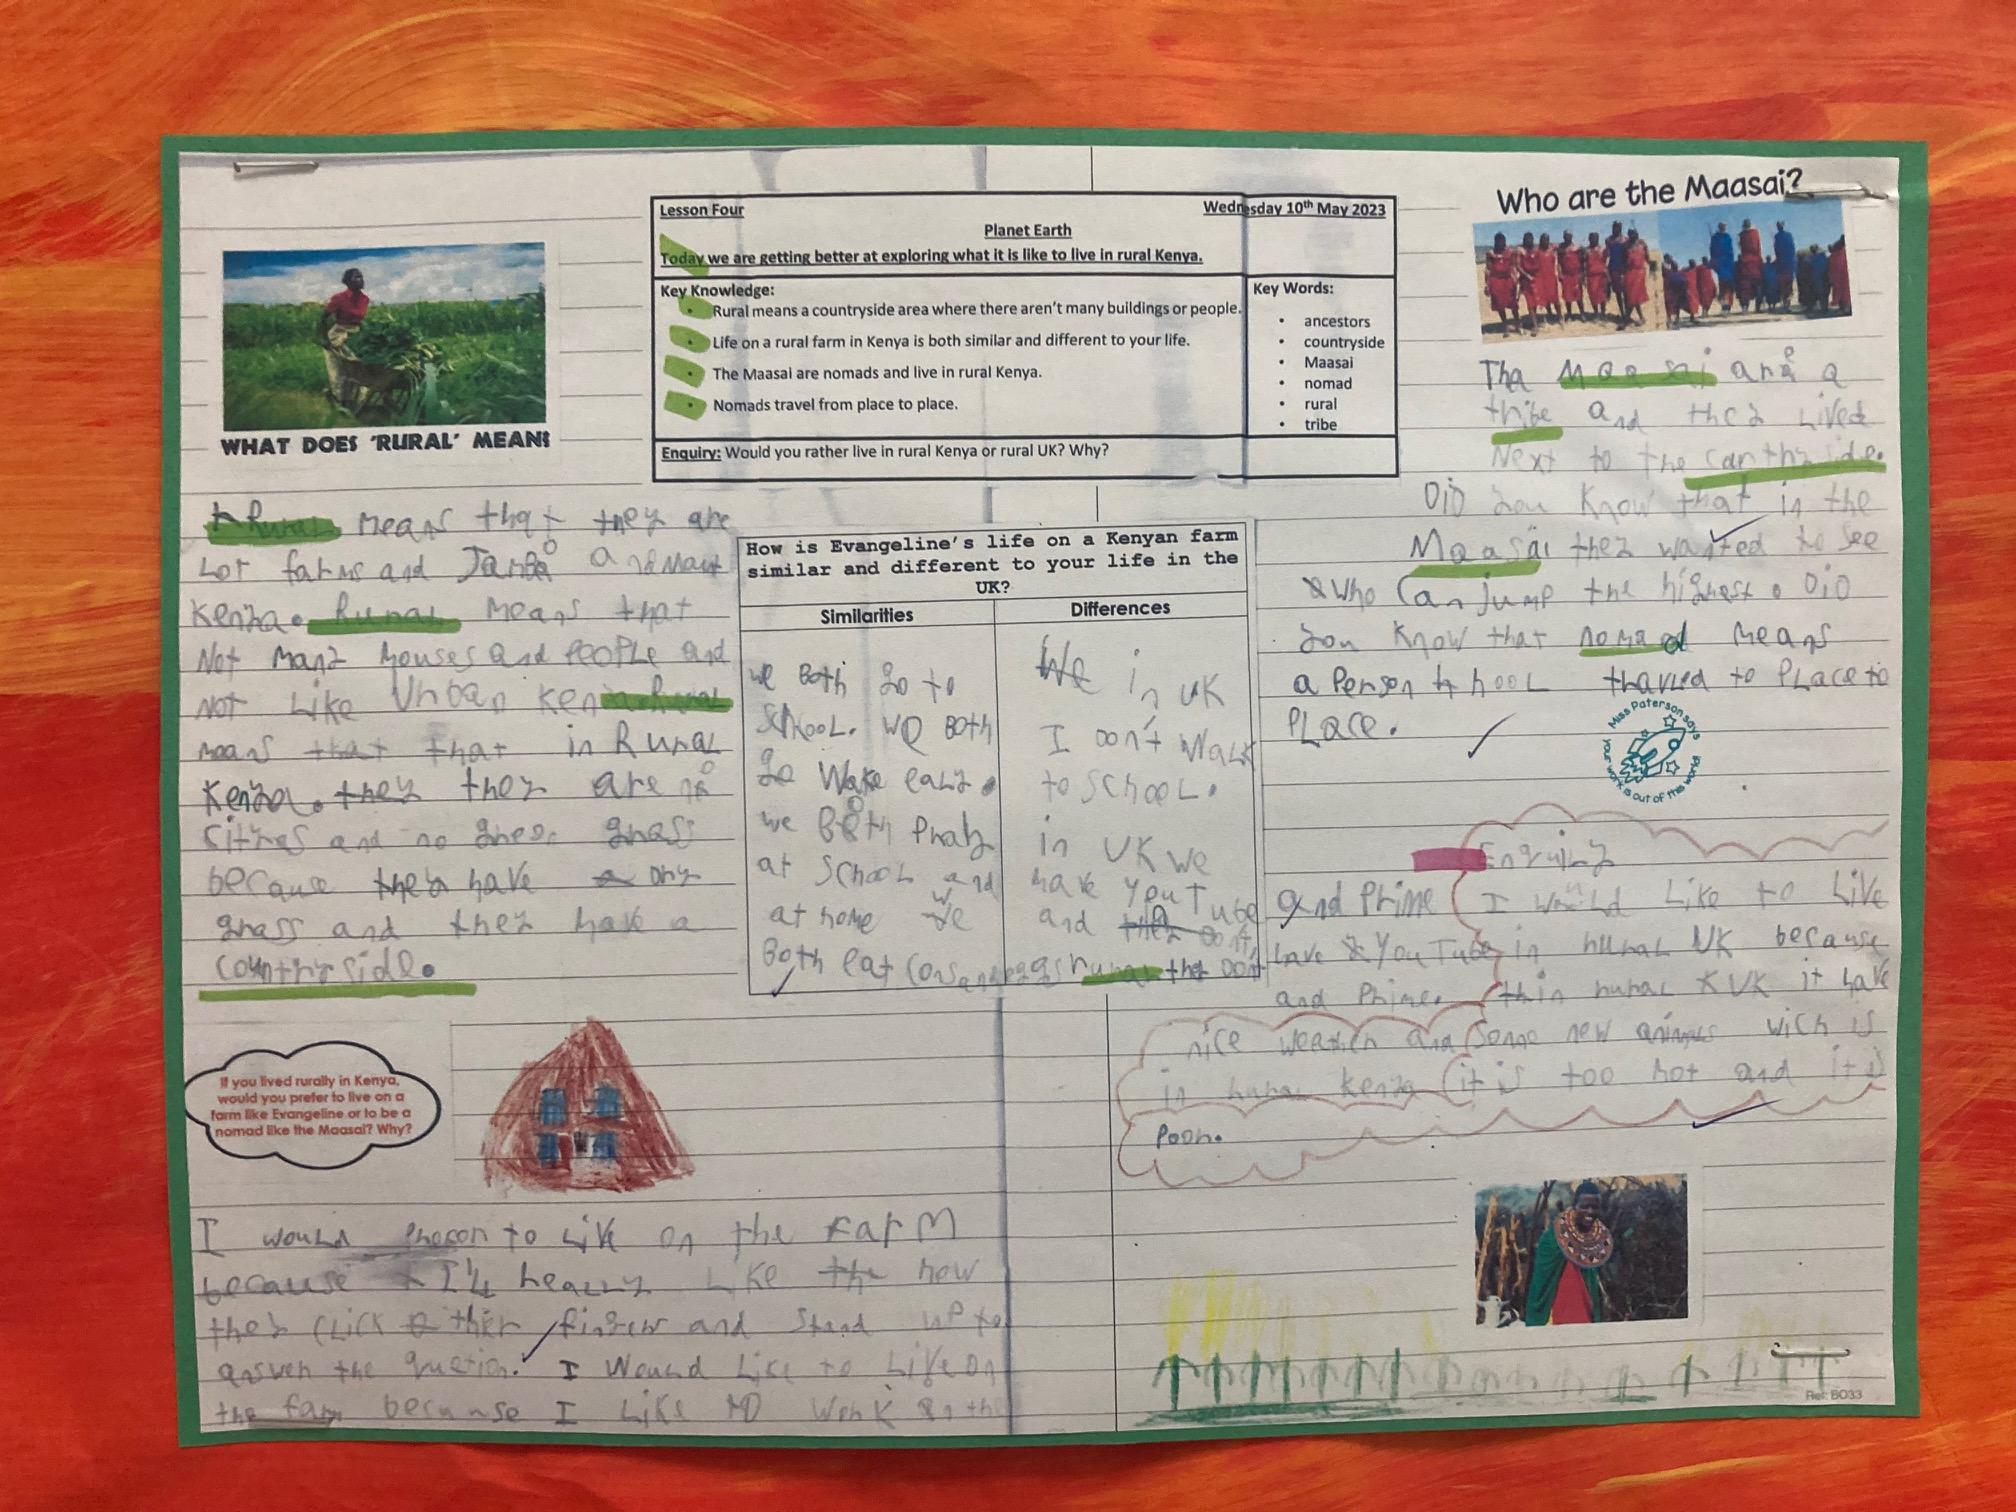 Lesson Four
Wednesday 10th May 2023
Planet Earth
Today we are getting better at exploring what it is like to live in rural Kenya.
Key Knowledge:
• Rural means a countryside area where there aren't many buildings or people.
• Life on a rural farm in Kenya is both similar and different to your life.
• The Maasai are nomads and live in rural Kenya.
• Nomads travel from place to place.
Key Words:
• ancestors
• countryside
• Maasai
• nomad
• rural
• tribe
Enquiry: Would you rather live in rural Kenya or rural UK? Why?
WHAT DOES 'RURAL' MEAN?
Rural means that they are
Lot farms and and
Kenya. Rural means that
Not many houses and people and
Not Like Urban Kenya Rural
means that that in Rural
Kenya. they they are no
and no green grass
because they have dry
grass and they have a
countryside.
How is Evangeline's life on a Kenyan farm
similar and different to your life in the
UK?
Similarities
we Both go to
School. we Both
go Wake
we Both Pray
at School and
at home we
Both eat
Differences
We in UK
I don't Walk
to School.
in UK we
have YouTube and Prime
and they don't have YouTube
rural they don't
and Prime.
Who are the Maasai?
Tha Maasai are a
tribe and they Lived
Next to the canthyside.
Did you Know that in the
Maasai they wanted to see
Who Can jump the highest. Did
you Know that nomad means
a Person to PLace to
PLace.
Miss Paterson says
your work is out of this world
Enquiry
I would Like to Live
in rural UK because
in rural UK it have
nice weather and some new animals wich is
in rural Kenya it is too hot and it is
Poor.
If you lived rurally in Kenya,
would you prefer to live on a
farm like Evangeline or to be a
nomad like the Maasai? Why?
I would to Live on the Farm
because Like the how
they CLick and Stand up to
answer the I Would Like to Live on
the farm because I Like
Ref: BO33